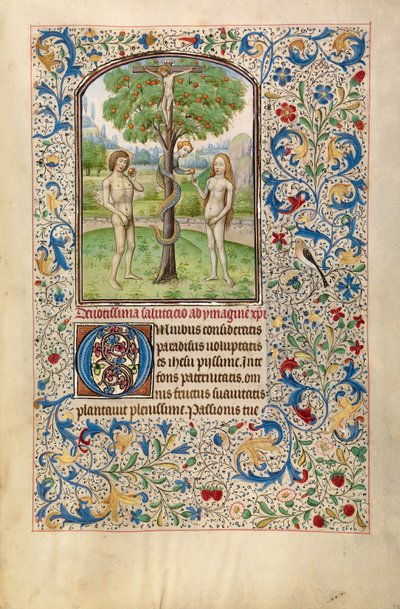 Deuotissima salutatio ad ymagine xpi
Omnibus consideratis
paradisus uoluptatis
es ihesu pijssime, In te
fons paternitatis, om
nis fructus suauitatis
plantauit plenissime. Passionis tue